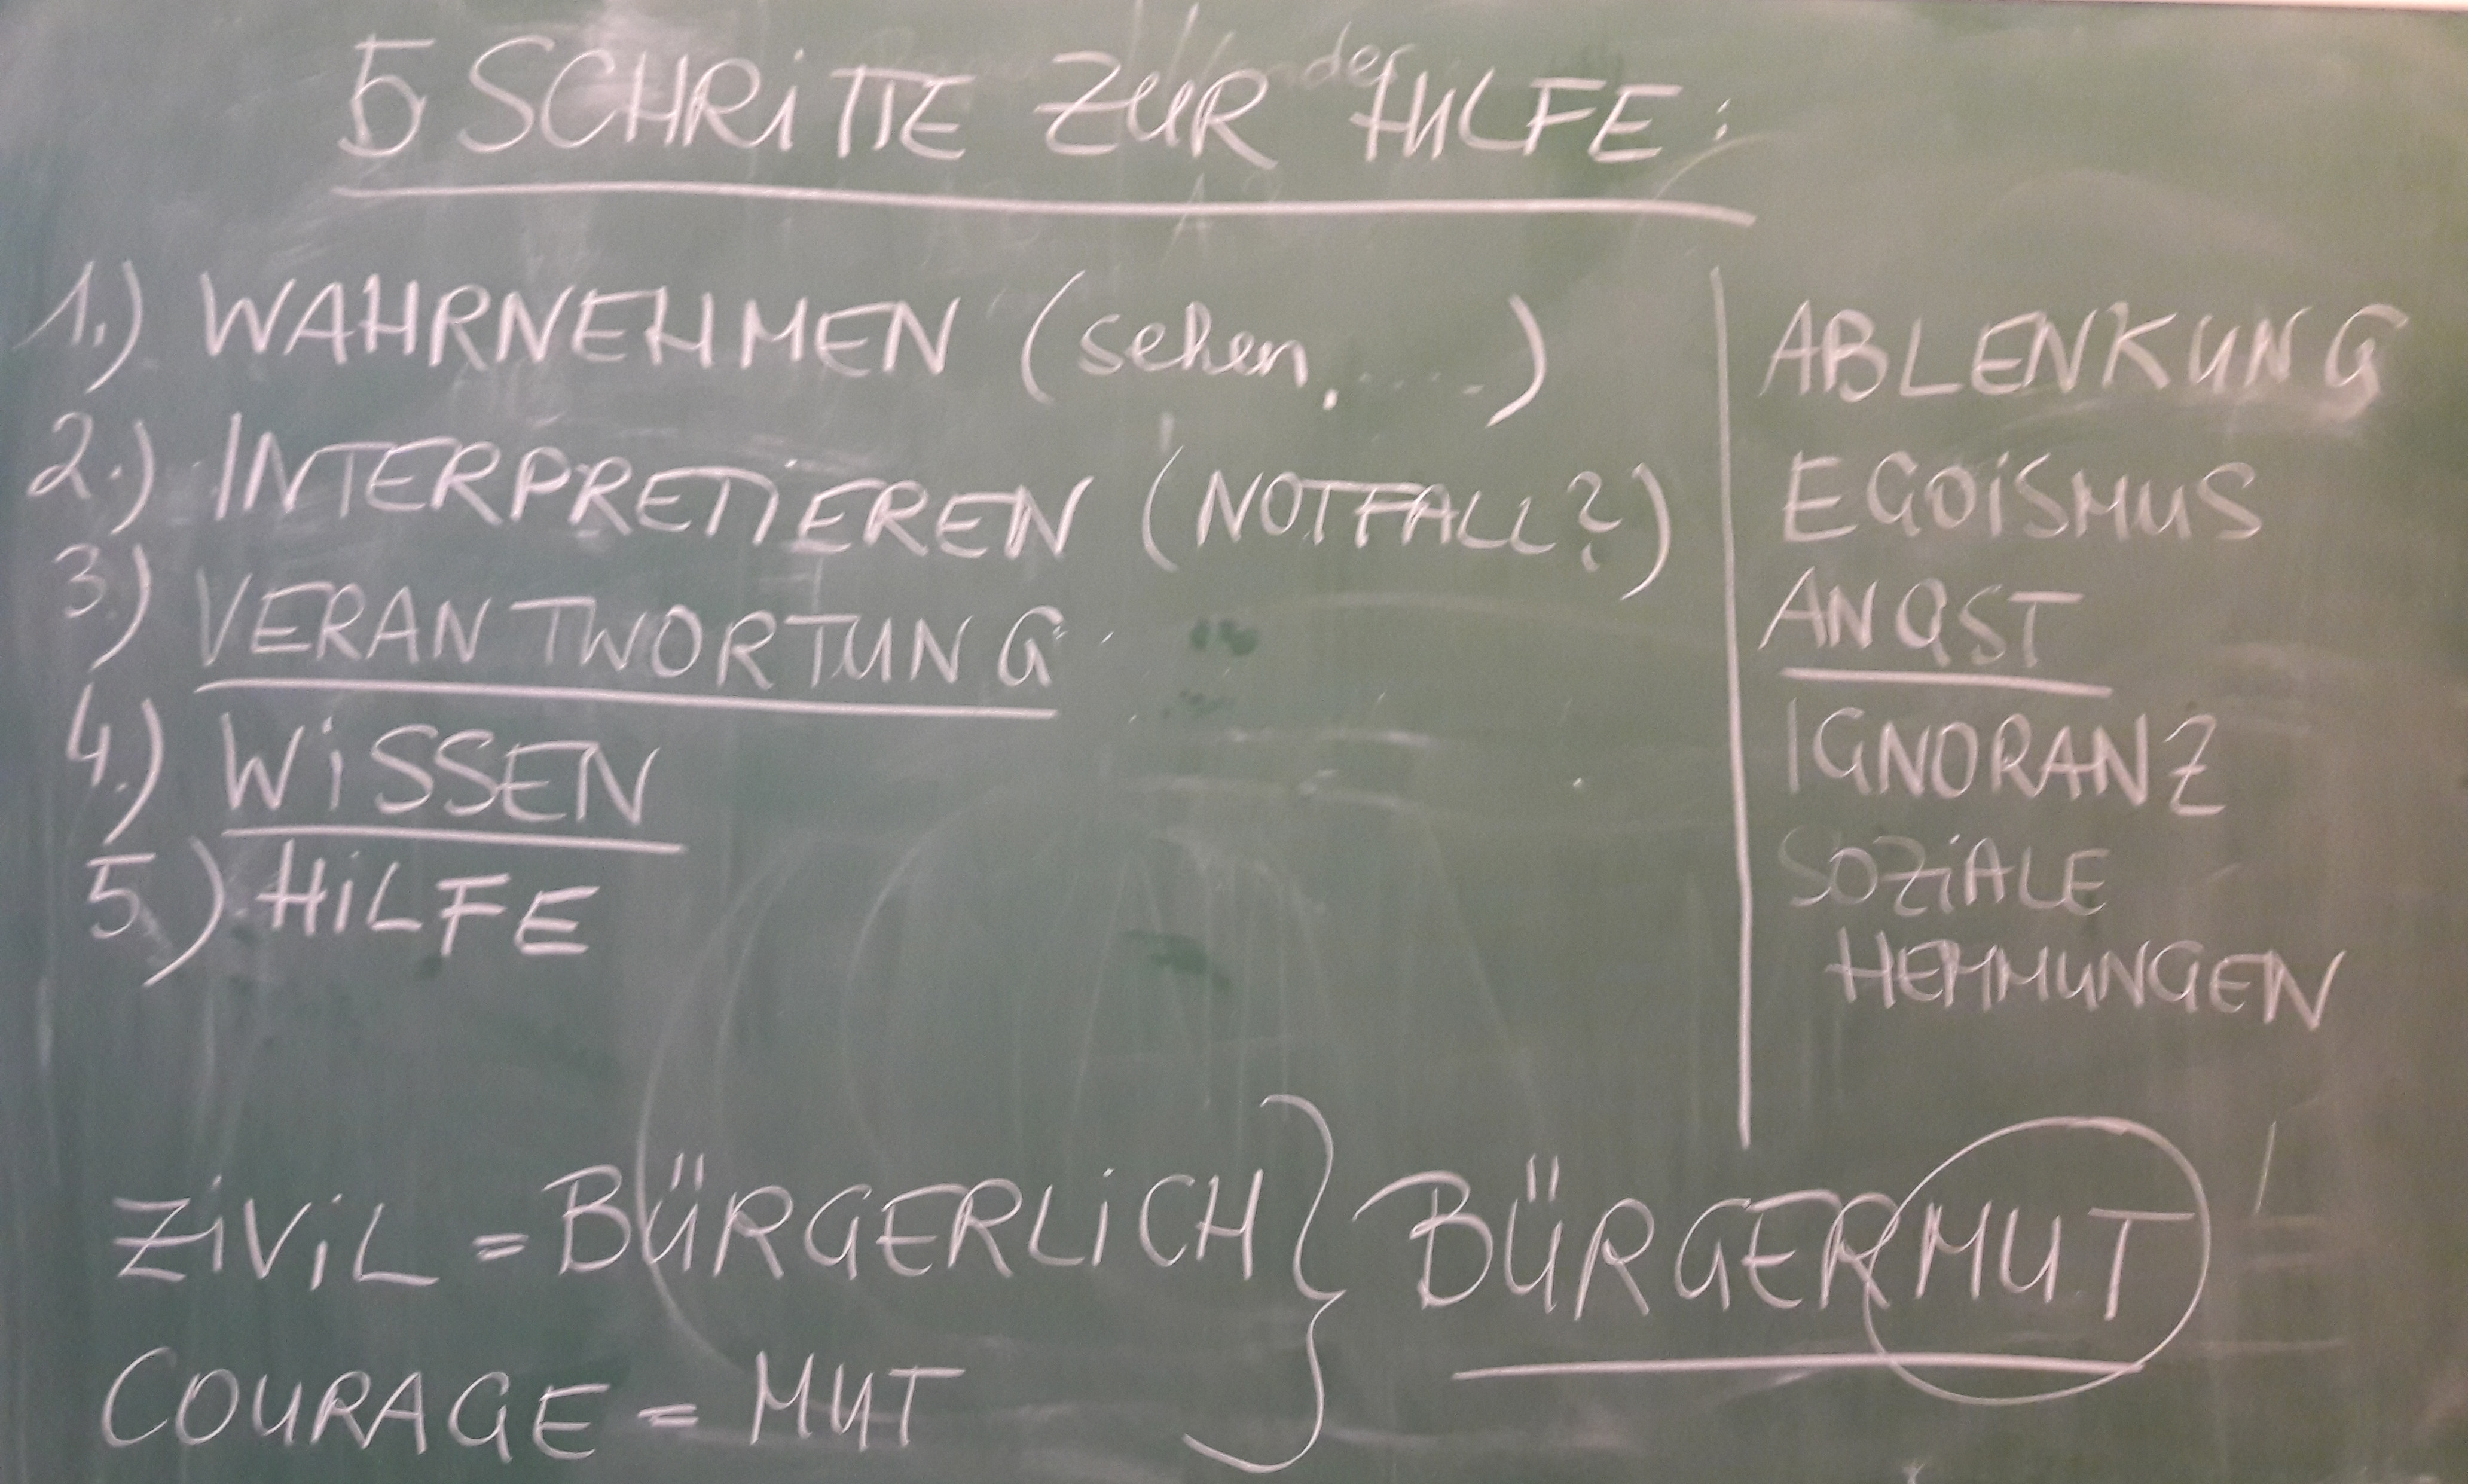 5 SCHRITTE ZUR HILFE:
1.) WAHRNEHMEN (sehen, .....)
2.) INTERPRETIEREN (NOTFALL?)
3.) VERANTWORTUNG
4.) WISSEN
5.) HILFE
ABLENKUNG
EGOISMUS
ANGST
IGNORANZ
SOZIALE
HEMMUNGEN
ZIVIL = BÜRGERLICH } BÜRGERMUT
COURAGE = MUT